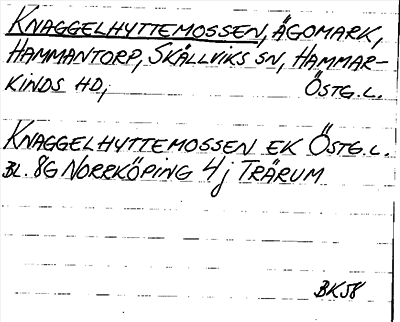 KNAGGELHYTTEMOSSEN, ÄGOMARK,
HAMMANTORP, SKÄLLVIKS SN, HAMMAR-
KINDS HD, ÖSTG.L.
KNAGGELHYTTEMOSSEN EK ÖSTG.L.
BL. 8G NORRKÖPING 4j TRÄRUM
BK58